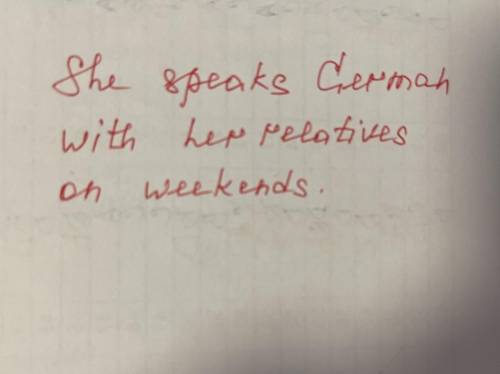 She speaks German
with her relatives
on weekends.